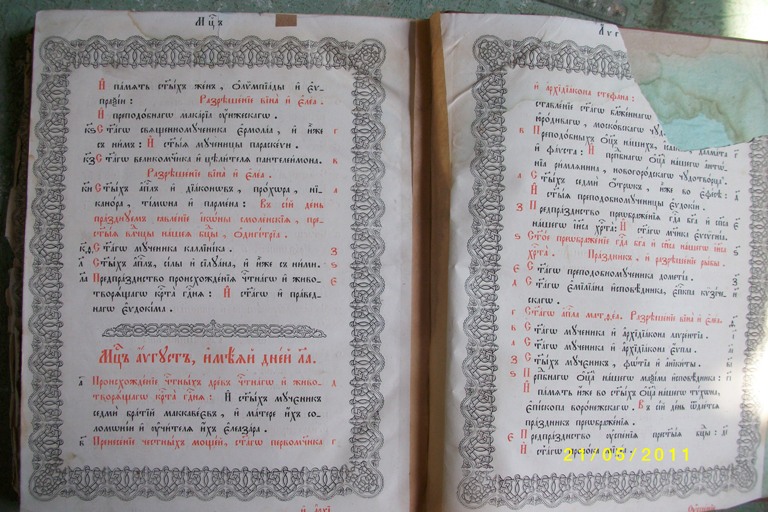 Мц҃ъ
И҆ па́мять ст҃ы́хъ же́нъ, ѻ҆лѷмпїа́ды и҆ є҆ѵ-
пра́ѯїи: Разрѣше́нїе вїна̀ и҆ є҆ле́а.
И҆ преподо́бнагѡ мака́рїа ᲂу҆́нжескагѡ.
к҃ѕ Ст҃а́гѡ свѧще́нномꙋченика є҆рмола́а, и҆ и҆̀же г
съ ни́мъ: И҆ ст҃ы́ѧ мꙋ́ченицы параске́ѵи.
к҃з Ст҃а́гѡ великомч҃ника и҆ цѣли́телѧ пантелеи́мона. в
Разрѣше́нїе вїна̀ и҆ є҆ле́а.
к҃и Ст҃ы́хъ а҆пⷭ҇лъ и҆ дїа́конѡвъ, про́хѡра, нї- а
кано́ра, тї́мѡна и҆ парме́на: Въ сі́й де́нь
пра́зднꙋемъ ꙗ҆вле́нїе і҆кѡ́ны смоле́нскїѧ, пре-
ст҃ы́ѧ влⷣцы на́шеѧ бцⷣы, ѻ҆диги́трїа.
к҃ѳ Ст҃а́гѡ мꙋ́ченика каллїні́ка. З
л҃ Ст҃ы́хъ а҆пⷭ҇лъ, сі́лы и҆ сїлꙋа́на, и҆ и҆̀же съ ни́ми. ѕ
л҃а Предпра́зднство происхожде́нїѧ чⷭ҇тна́гѡ и҆ живо- є
творѧ́щагѡ крⷭ҇та̀ гдⷭ҇нѧ: И҆ ст҃а́гѡ и҆ пра́вед-
нагѡ є҆ѵдокі́ма.
Мц҃ъ а҆́ѵгꙋстъ, и҆мѣ́ѧй дні́й л҃а.
а҃ Происхожде́нїе чⷭ҇тны́хъ дре́въ чⷭ҇тна́гѡ и҆ живо- д
творѧ́щагѡ крⷭ҇та̀ гдⷭ҇нѧ: И҆ ст҃ы́хъ мꙋ́ченикъ
седмѝ бра́тїй маккаве́євъ, и҆ ма́тере и҆́хъ со-
ломѡні́и и҆ ᲂу҆чи́телѧ и҆́хъ є҆леаза́ра.
в҃ Принесе́нїе честны́хъ моще́й, ст҃а́гѡ первомч҃ника г
А҆ѵг
и҆ а҆рхїдїа́кона стефа́на:
ставле́нїе ст҃а́гѡ блаже́ннагѡ
ї҆ро́дивагѡ, моско́вскагѡ
в Преподо́бныхъ ѻ҆ц҃ъ на́шихъ, далма́та
и҆ фа́ѵста: И҆ прпⷣбнагѡ ѻ҆ц҃а̀ на́шегѡ а҆нтѡ́-
нїа ри́млѧнина, новгоро́дскагѡ чꙋдотво́рца.
а Ст҃ы́хъ седмѝ ѻ҆трѡ́къ, и҆̀же во є҆фе́сѣ: д
И҆ ст҃ы́ѧ преподобномꙋ́ченицы є҆ѵдокі́и.
З Предпра́зднство преѡбраже́нїѧ гдⷭ҇а бг҃а и҆ сп҃са є
на́шегѡ і҆и҃са хрⷭ҇та̀: И҆ ст҃а́гѡ мч҃ника є҆ѵсїгні́а.
ѕ Ст҃о́е преѡбраже́нїе гдⷭ҇а бг҃а и҆ сп҃са на́шегѡ і҆и҃са ѕ
хрⷭ҇та̀. Пра́здникъ, и҆ разрѣше́нїе ры́бы.
є Ст҃а́гѡ преподобномꙋ́ченика доме́тїа. З
д Ст҃а́гѡ є҆мїлїа́на и҆сповѣ́дника, є҆пⷭ҇кпа кѷзи́че- и
скагѡ.
г Ст҃а́гѡ а҆пⷭ҇ла матѳі́а. Разрѣше́нїе вїна̀ и҆ є҆ле́а.
в Ст҃а́гѡ мꙋ́ченика и҆ а҆рхїдїа́кона лаѵре́нтїа.
а Ст҃а́гѡ мꙋ́ченика и҆ а҆рхїдїа́кона є҆ѵпла̀.
З Ст҃ы́хъ мꙋ́ченикъ, фѡ́тїа и҆ а҆ники́ты.
ѕ Прпⷣбнагѡ ѻ҆ц҃а̀ на́шегѡ маѯі́ма и҆сповѣ́дника:
И҆ па́мять и҆́же во ст҃ы́хъ ѻ҆ц҃а̀ на́шегѡ ті́хѡна,
є҆пі́скопа воро́нежскагѡ. Въ сі́й де́нь ѿдае́тсѧ
пра́здникъ преѡбраже́нїѧ.
є Предпра́зднство ᲂу҆спе́нїѧ прест҃ы́ѧ бцⷣы:
И҆ ст҃а́гѡ проро́ка
21/05/2011